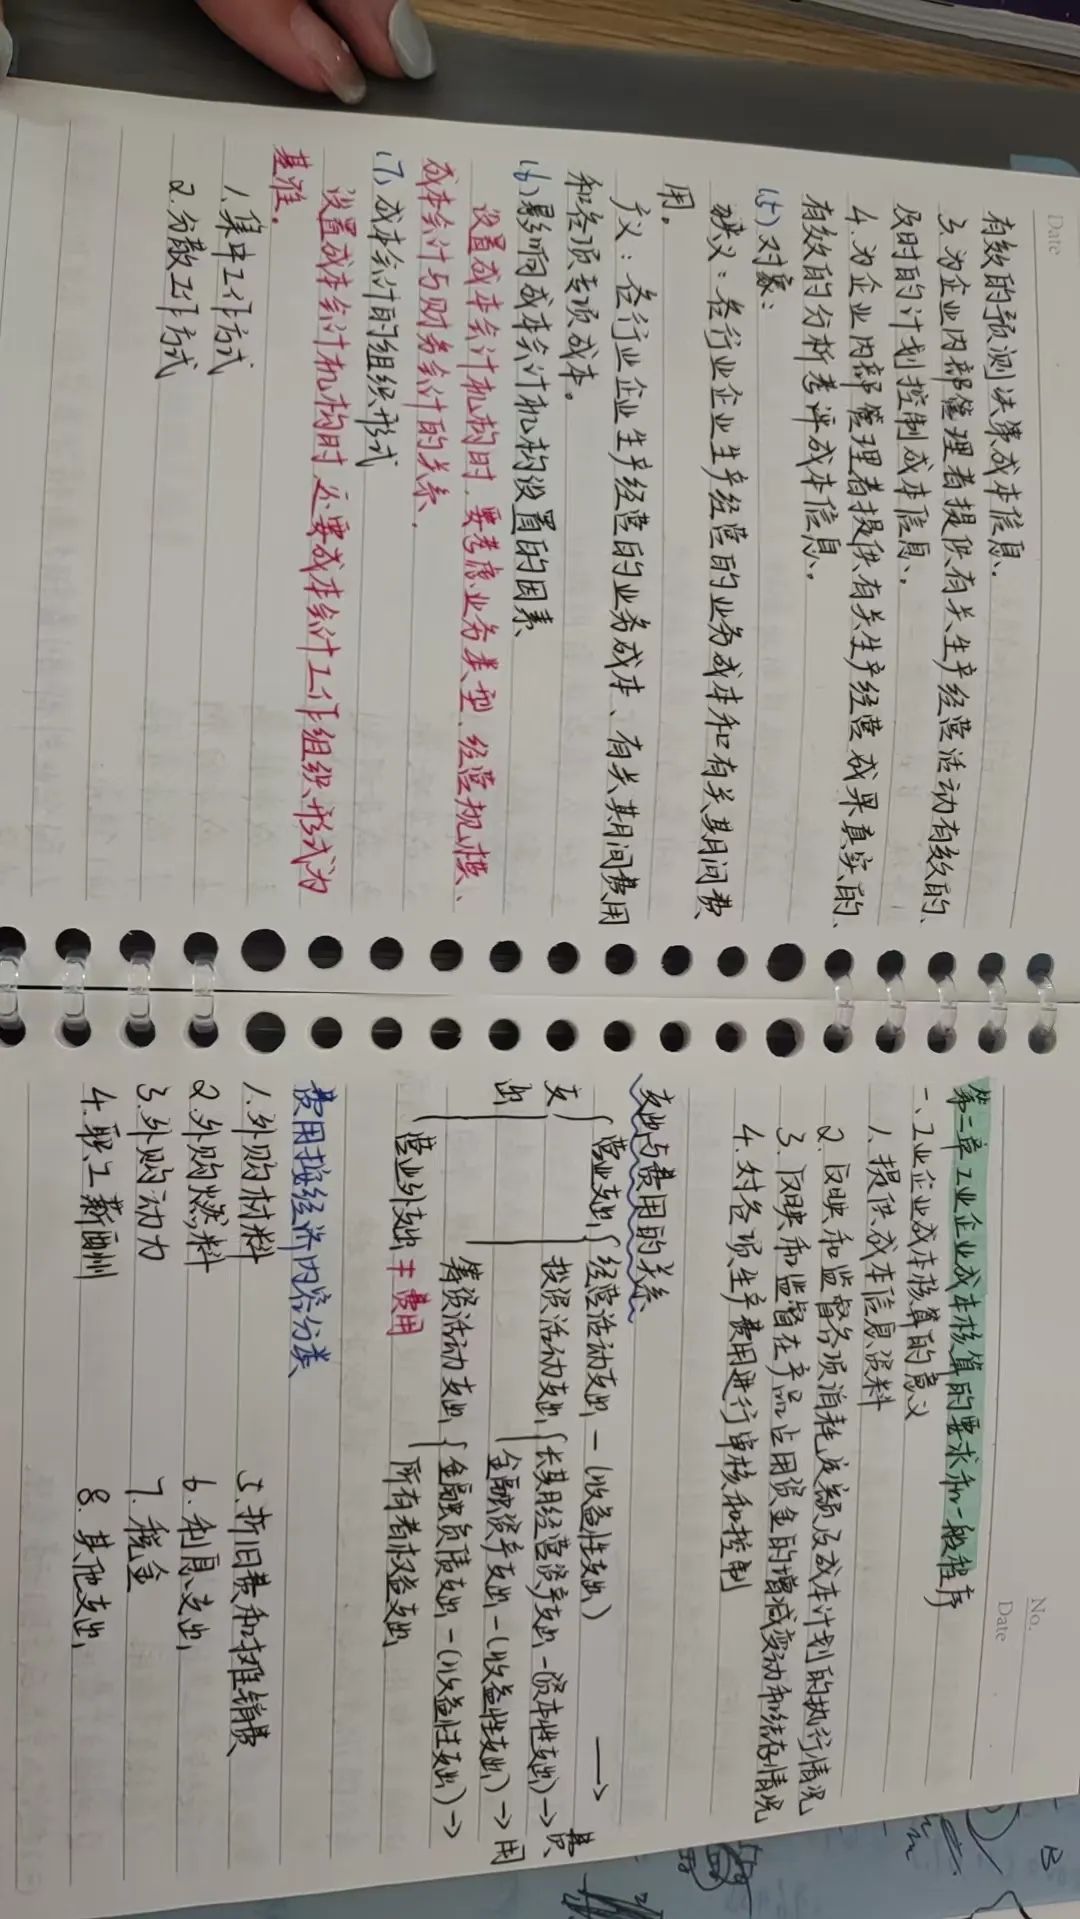 Date
有效的预测决策成本信息.
3. 为企业内部管理者提供有关生产经营活动有效的、
及时的计划控制成本信息.
4. 为企业内部管理者提供有关生产经营成果真实的、
有效的分析考评成本信息.
(5)对象:
狭义:各行业企业生产经营的业务成本和有关期间费
用。
广义:各行业企业生产经营的业务成本、有关期间费用
和各项专项成本。
(6)影响成本会计机构设置的因素
设置成本会计机构时,要考虑业务类型、经营规模、
成本会计与财务会计的关系.
(7)成本会计的组织形式
设置成本会计机构时还要成本会计工作组织形式为
基准。
1. 集中工作方式
2. 分散工作方式
No.
Date
第二章 工业企业成本核算的要求和一般程序
一、工业企业成本核算的意义
1. 提供成本信息资料
2. 反映和监督各项消耗定额及成本计划的执行情况
3. 反映和监督在产品占用资金的增减变动和结存情况
4. 对各项生产费用进行审核和控制
支出与费用的关系
支出
营业支出 经营活动支出 — (收益性支出) →
投资活动支出 长期经营资产支出 - (资本性支出) →
金融资产支出 - (收益性支出) →
筹资活动支出 金融负债支出 - (收益性支出) →
营业外支出 ≠ 费用 所有者权益支出
费用
费用按经济内容分类
1. 外购材料 5. 折旧费和摊销费
2. 外购燃料 6. 利息支出
3. 外购动力 7. 税金
4. 职工薪酬 8. 其他支出
B